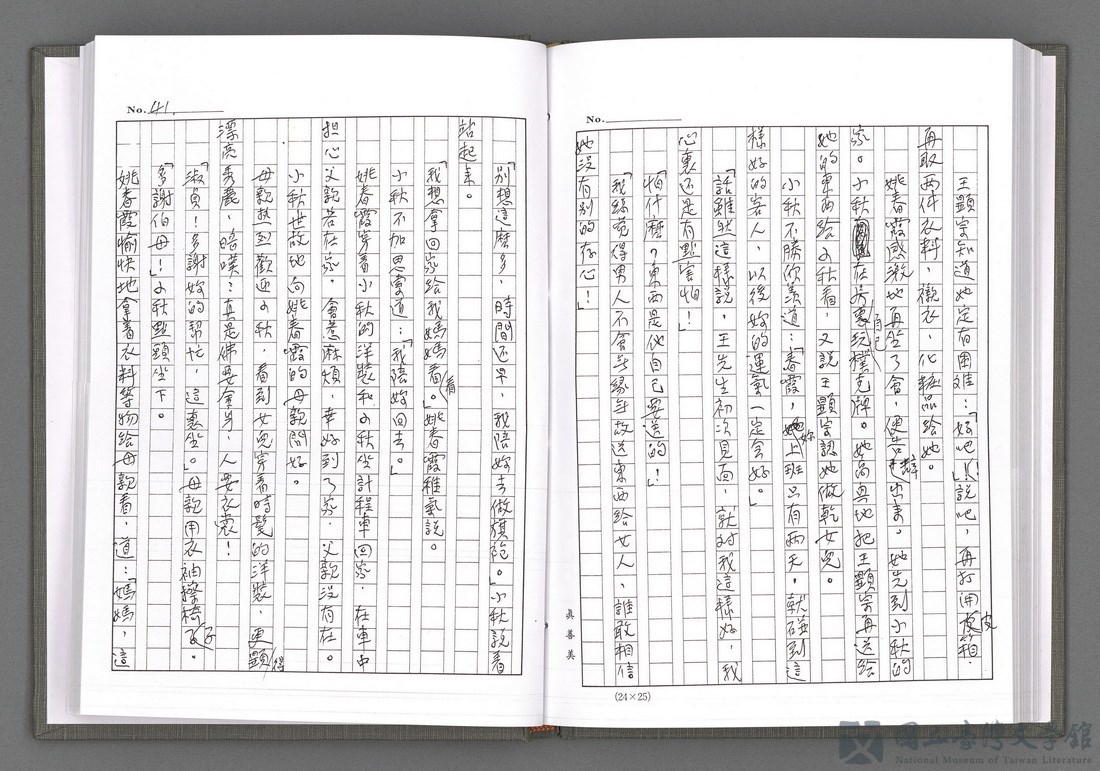 No.
王顯宗知道她定有困难：「好吧！」說吧，再打開皮箱．
再取兩件衣料，襯衣，化粧品給她。
姚春霞感激地再坐了會，便告辭出來。她先到小秋的
家。小秋在房裏玩樸克牌。她高興地把王顯宗再送給
她的東西給小秋看，又說王顯宗認她做乾女兒。
小秋不勝欣羨道：「春霞，妳上班只有兩天，就碰到這
樣好的客人，以後妳的運氣一定會好。」
「話雖然這樣說，王先生初次見面，就对我這樣好，我
心裏还是有點害怕！」
「怕什麽？東西是他自己要送的！」
「我總覚得男人不會無緣無故送東西給女人，誰敢相信
她没有別的存心！」
眞善美
(24×25)
No. 41.
「別想這麽多，時間还早，我陪妳去做旗袍。」小秋說着
站起來。
「我想拿回家給我媽媽看。」姚春霞稚氣說。
小秋不加思索道：「我陪妳回去。」
姚春霞穿着小秋的洋裝和小秋坐計程車回家．在車中
担心父親若在家，會惹麻煩，幸好到了家，父親没有在。
小秋世故地向姚春霞的母親問好。
母親热烈歡迎小秋，看到女兒穿着時髦的洋裝，更顯得
漂亮秀麗，暗嘆：真是佛要金身，人要衣裳！
「淑貞！多謝妳的幫忙，這裏坐。」母親用衣袖擦椅子。
「多謝伯母！」小秋點頭坐下。
姚春霞愉快地拿着衣料等物給母親看，道：「媽媽，這
國立臺灣文學館
National Museum of Taiwan Literature